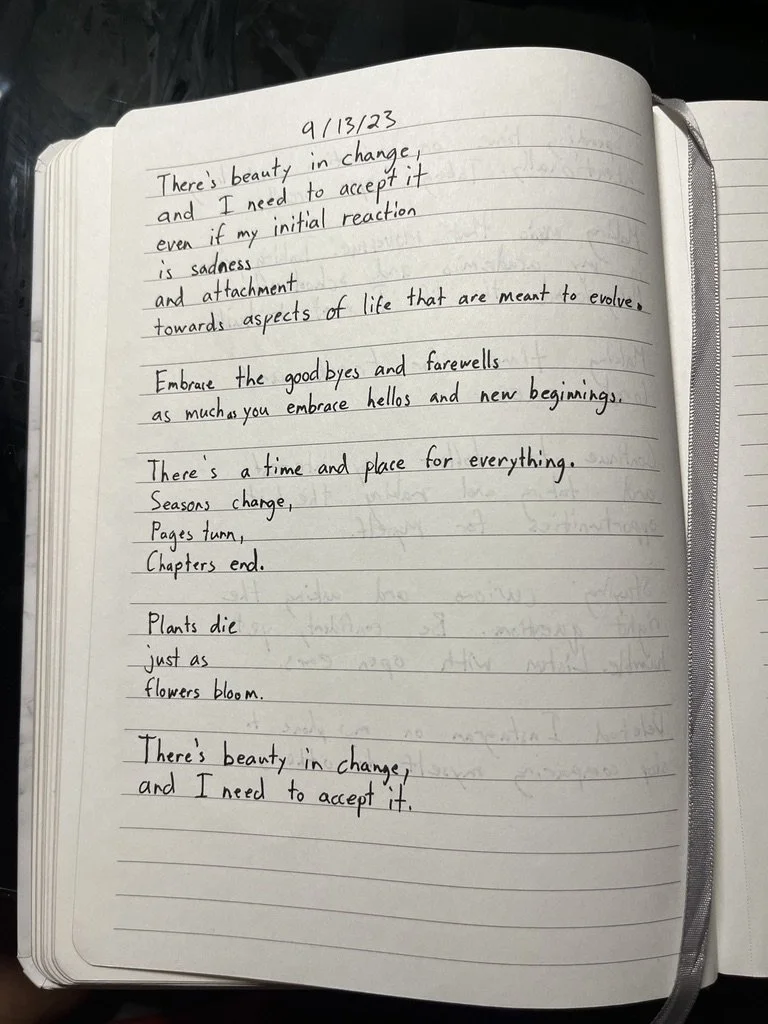 9/13/23
There's beauty in change,
and I need to accept it
even if my initial reaction
is sadness
and attachment
towards aspects of life that are meant to evolve.
Embrace the goodbyes and farewells
as much as you embrace hellos and new beginnings.
There's a time and place for everything.
Seasons change,
Pages turn,
Chapters end.
Plants die
just as
flowers bloom.
There's beauty in change,
and I need to accept it.